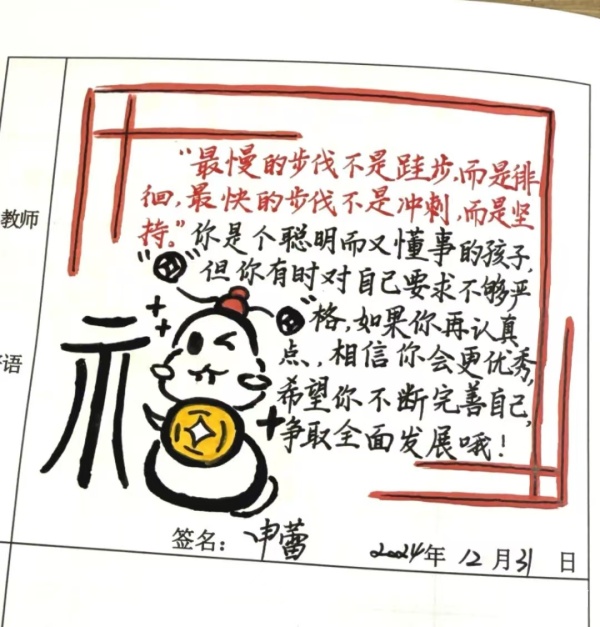 "最慢的步伐不是跬步,而是徘
徊,最快的步伐不是冲刺,而是坚
持。"你是个聪明而又懂事的孩子,
但你有时对自己要求不够严
格,如果你再认真
点,相信你会更优秀,
希望你不断完善自己,
争取全面发展哦!
教师
评语
签名: 申蕾 2024年 12月31日